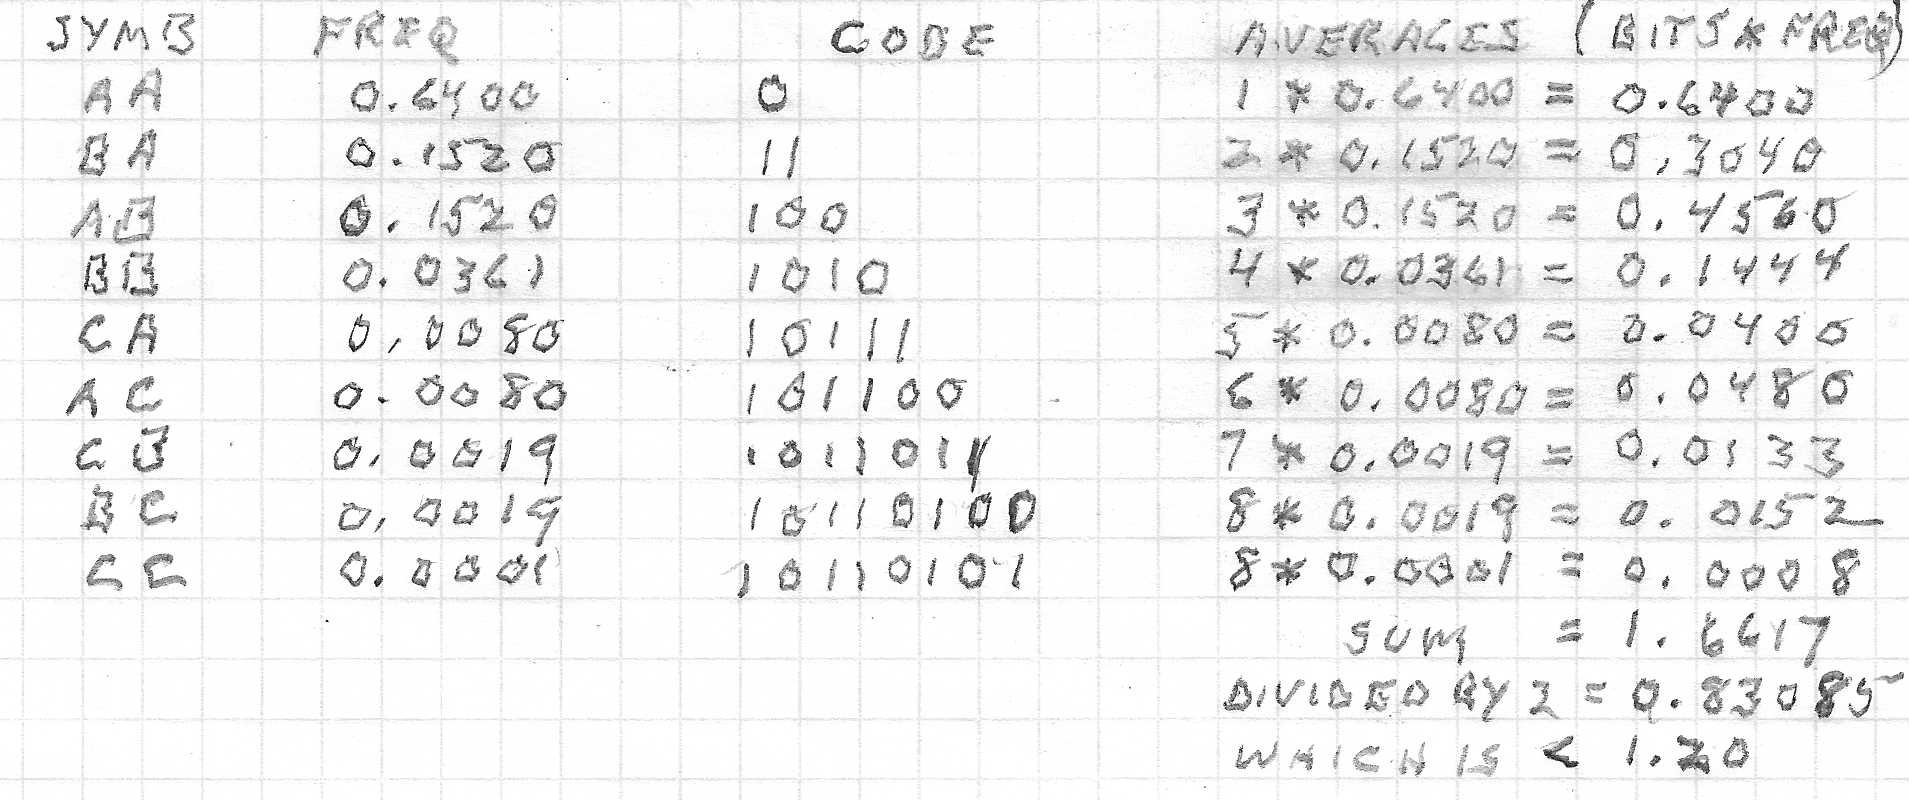 SYMB FREQ CODE AVERAGES (BITS*FREQ)
AA 0.6400 0 1 * 0.6400 = 0.6400
BA 0.1520 11 2 * 0.1520 = 0.3040
AB 0.1520 100 3 * 0.1520 = 0.4560
BB 0.0361 1010 4 * 0.0361 = 0.1444
CA 0.0080 10111 5 * 0.0080 = 0.0400
AC 0.0080 101100 6 * 0.0080 = 0.0480
CB 0.0019 1011011 7 * 0.0019 = 0.0133
BC 0.0019 10110100 8 * 0.0019 = 0.0152
CC 0.0001 10110101 8 * 0.0001 = 0.0008
SUM = 1.6617
DIVIDED BY 2 = 0.83085
WHICH IS < 1.20